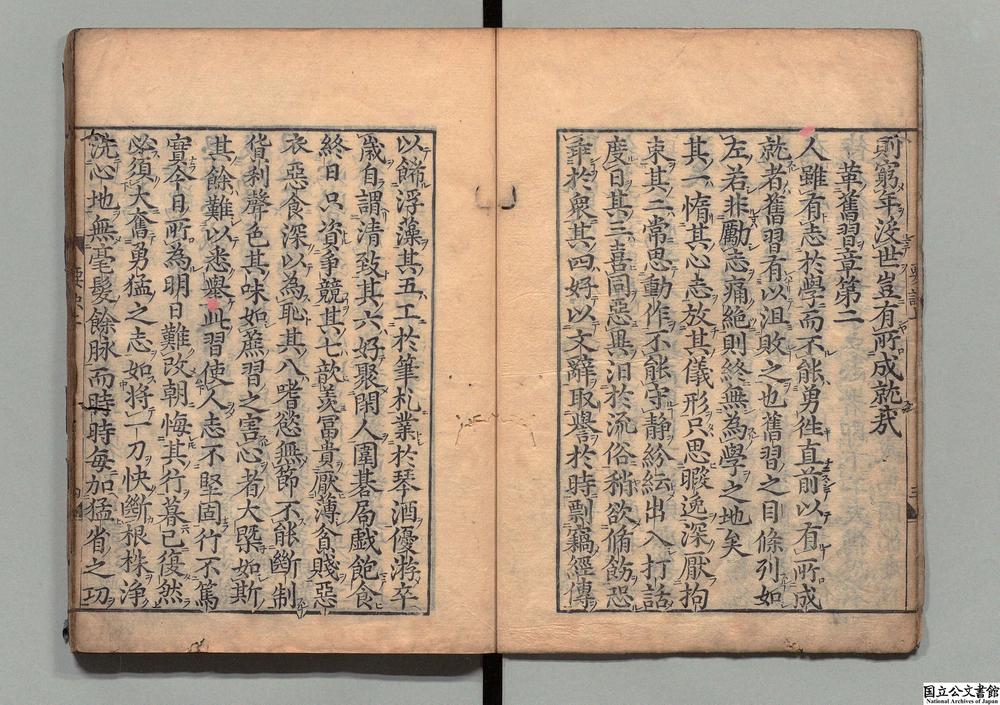 前窮年沒世豈有所成就哉
革舊習章第二
人雖有志於學而不能勇徃直前以有所成
就者舊習有以沮敗之也舊習之目條列如
左若非勵志痛絶則終無為學之地矣
其一惰其心志放其儀形只思暇逸深厭拘
束其二常思動作不能守静紛紜出入打話
度日其三喜同惡異汨於流俗稍欲脩飭恐
乖於衆其四好以文辭取譽於時剽竊經傳
以餙浮藻其五工於筆札業於琴酒優游卒
歳自謂清致其六好聚閑人圍碁局戲飽食
終日只資爭競其七歆羨冨貴厭薄貧賤惡
衣惡食深以為耻其八嗜慾無節不能斷制
貨利聲色其味如蔗習之害心者大槩如斯
其餘難以悉擧此習使人志不堅固行不篤
實今日所為明日難改朝悔其行暮已復然
必須大奮勇猛之志如將一刀快斷根株淨
洗心地無毫髮餘脉而時時每加猛省之功
国立公文書館
National Archives of Japan